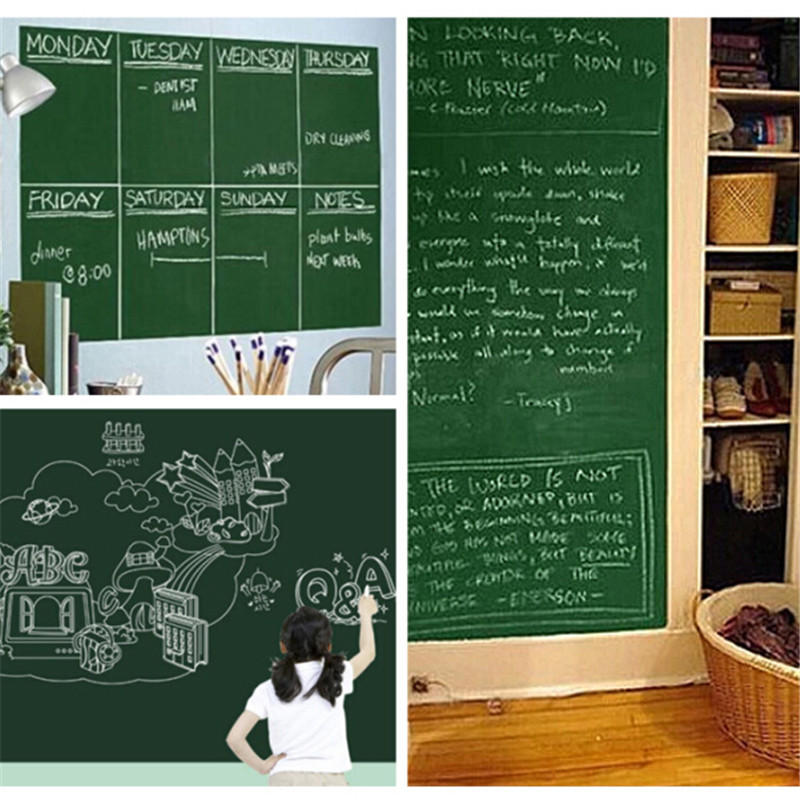 MONDAY
TUESDAY
- DENTIST
11AM
WEDNESDAY
THURSDAY
DRY CLEANING
FRIDAY
dinner
@ 8:00
SATURDAY
HAMPTONS
SUNDAY
NOTES
plant bulbs
NEXT WEEK
N LOOKING BACK,
NG THAT "RIGHT NOW I'D
MORE NERVE"
- C. Frazier (Cold Mountain)
mes I wish the whole world
tip itself upside down, shake
up like a snowglobe and
everyone into a totally different
. I wonder what'd happen, if we'd
do everything the way we always
would we somehow change in
stant, as if it would have actually
possible all along to change if
Normal? - Tracy J
THE WORLD IS NOT
NTED, OR ADORNED, BUT IS
M THE BEGINNING BEAUTIFUL;
D GOD HAS NOT MADE SOME
THINGS, BUT BEAUTY
THE CREATOR OF THE
UNIVERSE - EMERSON -
ABC
Q&A